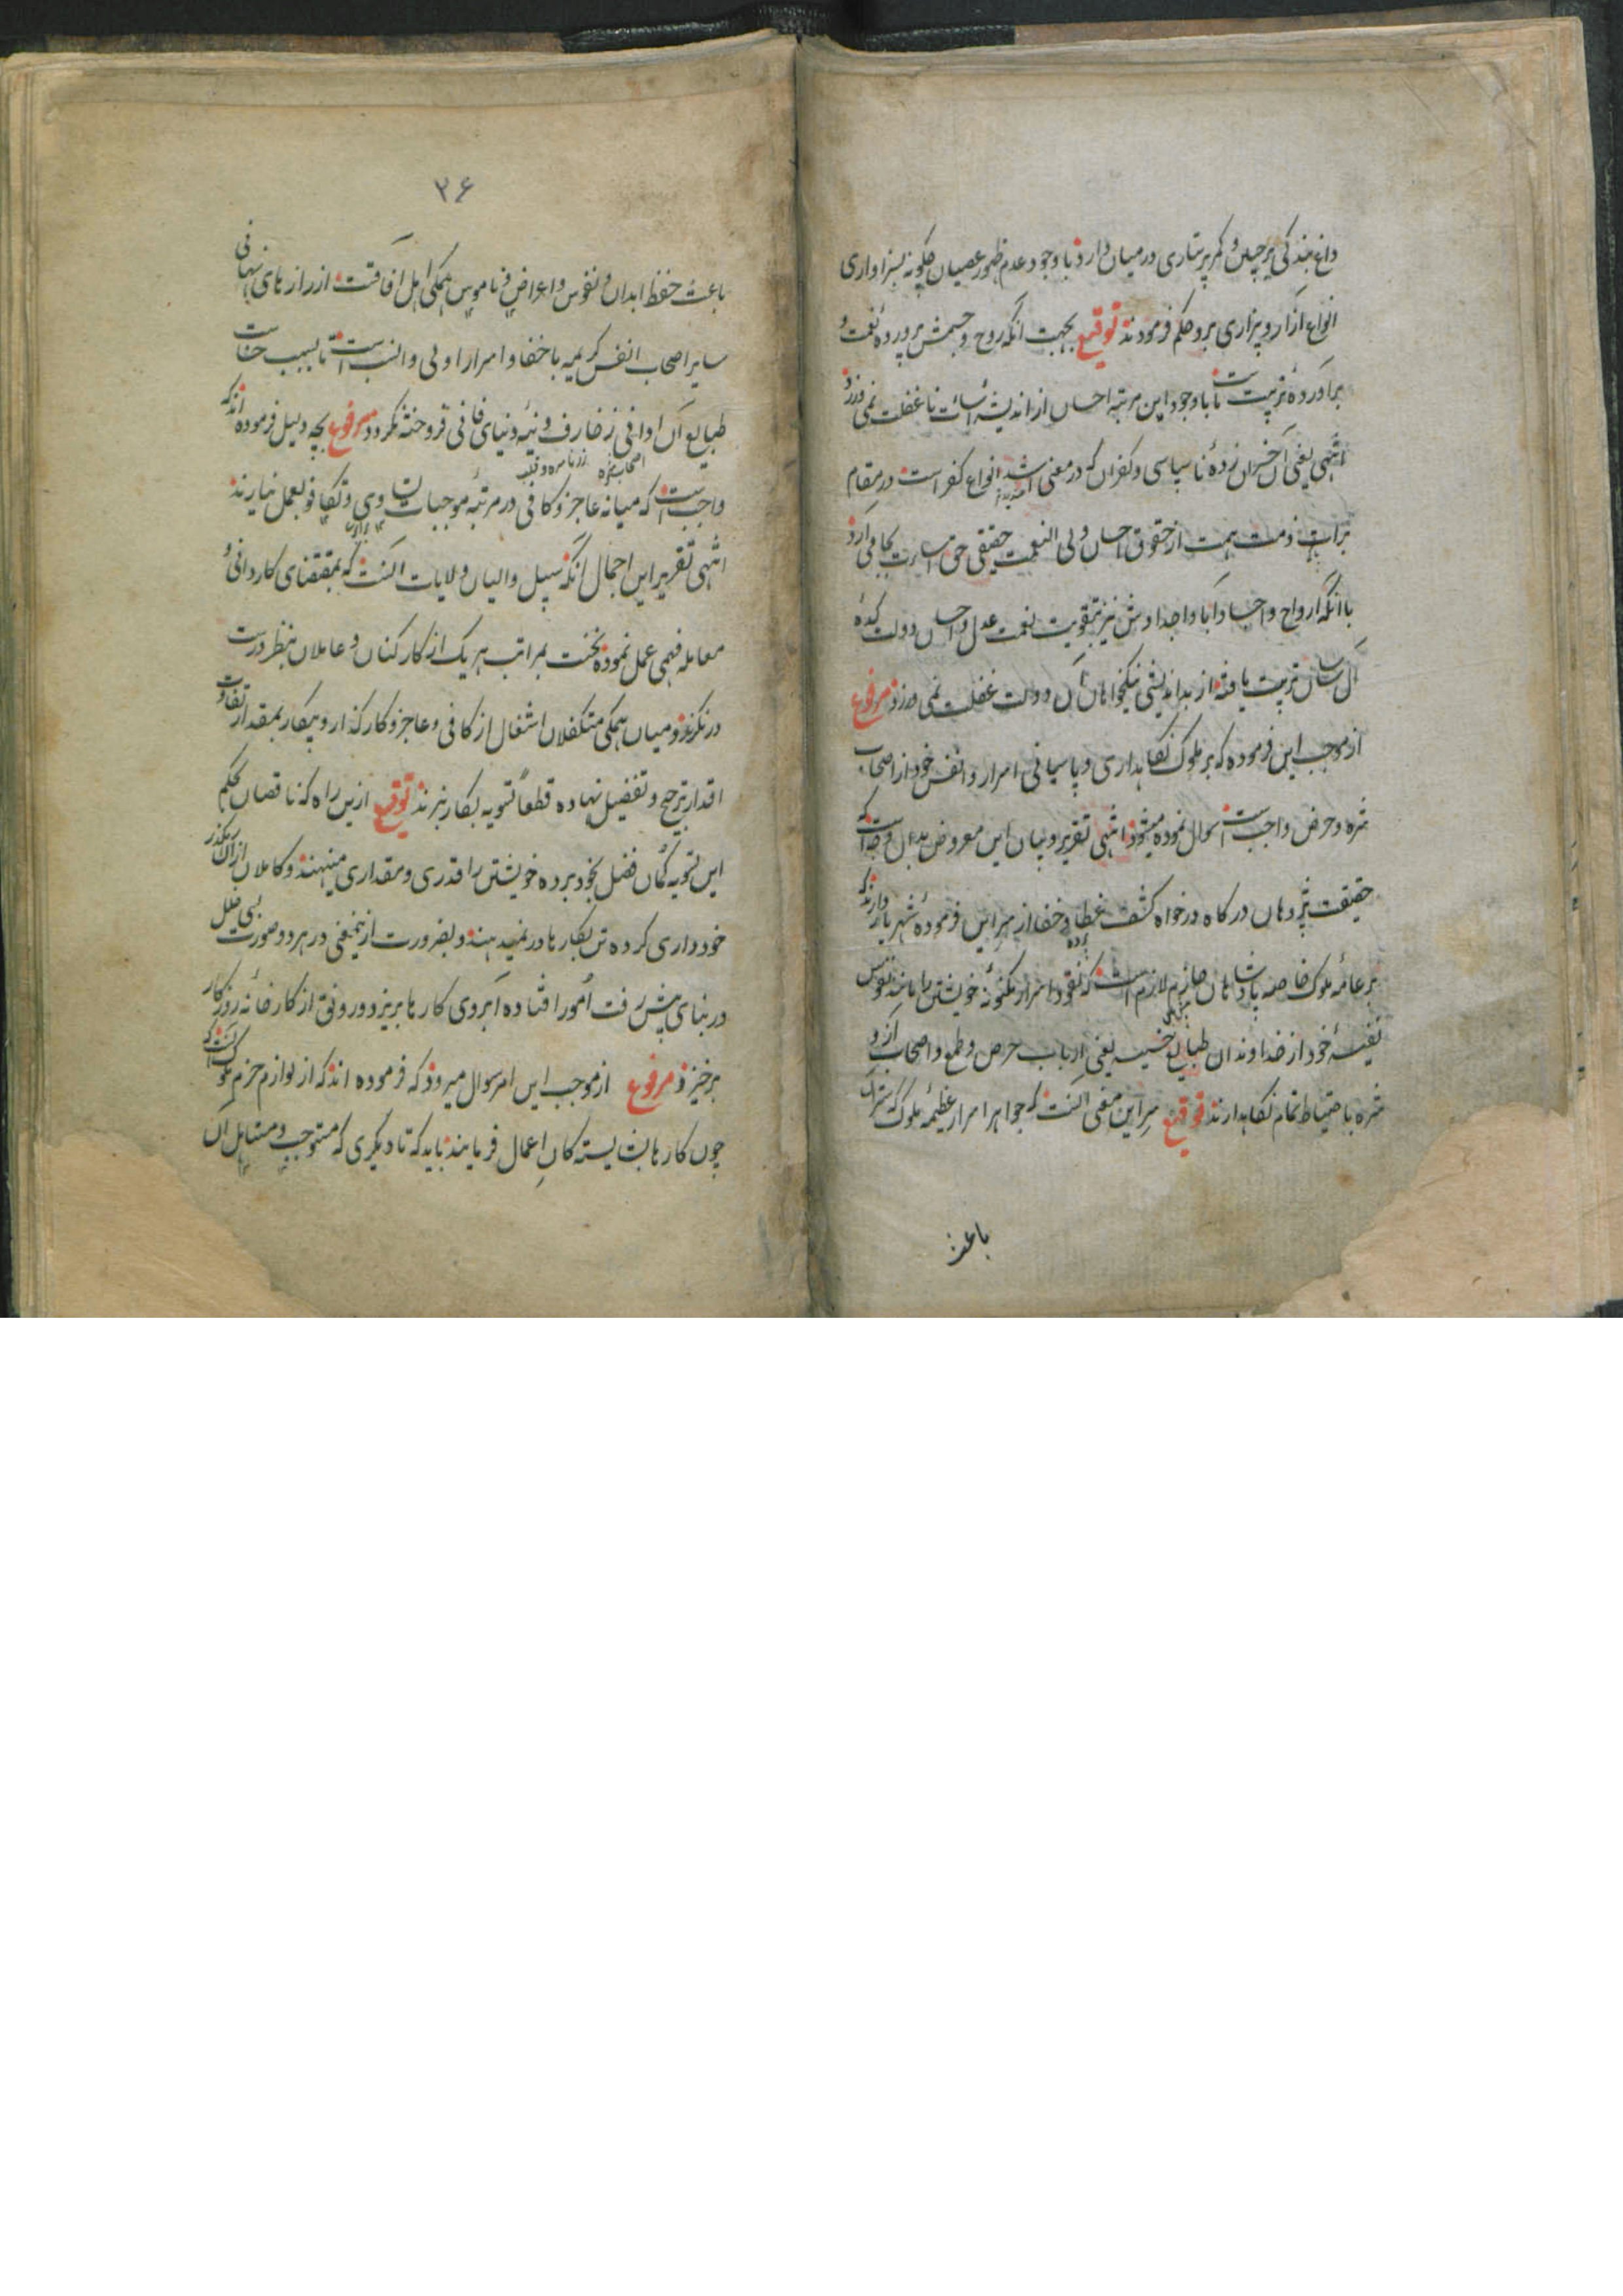 داغ بندگی بر جبین و کمر پرستاری در میان دارد با وجود عدم ظهور عصیان چگونه بسزاواری
انواع آزار و بیزاری برو حکم فرمودند توقیع بجهت آنکه روح و جسمش پرورده نعمت و
برآورده تربیت ماست با وجود این مرتبه احسان از اندیشه اسائت ما غفلت نمی ورزد
انتهی یعنی آن خسران زده ناسپاسی و کفران که در معنی اشد انواع کفر است در مقام
برات ذمت همت از حقوق احسان ولی النعمت حقیقی حق اسائت بجا می آرد
با آنکه ارواح و اجساد آبا و اجدادش نیز بتقویت نعمت عدل و احسان دولت کده
آل ساسان تربیت یافته از بداندیشی نیکخواهان آن دولت غفلت نمی ورزد مرفوع
از موجب این فرموده که بر ملوک نگاهداری و پاسبانی اسرار و انفس خود از اصحاب
شره و حرص واجب است سوال نموده میشود انتهی تقریر و بیان این معروض بدین وجه است که
حقیقت پژوهان درگاه درخواه کشف غطا و خفا از سر این فرموده شهریار دارند که
بر عامه ملوک خاصه پادشاهان حازم لازم است که نقود اسرار مکنونه خویشتن را مانند نفوس
نفیسه خود از خداوندان طبایع خسیسه یعنی ارباب حرص و طمع و اصحاب آز و
شره باحتیاط تمام نگاهدارند توقیع سر این معنی آنست که جواهر اسرار عظیمه ملوک که ستر آن
باعث
۳۶
باعث حفظ ابدان و نفوس و اعراض و ناموس همگی اهل آفاقت از رازهای نهانی
سایر اصحاب انفس کریمه باخفا و اسرار اولی و انسب است تا بسبب خساست
طبایع آن اوانی زخارف دنیه دنیای فانی فروخته نگردد مرفوع بچه دلیل فرموده اند که
واجب است که میانه عاجز و کافی در مرتبه موجبات تساوی و تکافو بعمل نیارند
انتهی تقریر این اجمال آنکه سبیل والیان ولایات آنست که بمقتضای کاردانی و
معامله فهمی عمل نموده نخست بمراتب هر یک از کارکنان و عاملان بنظر درست
در نگرند و میان همگی متکفلان اشغال از کافی و عاجز و کارگذار و بیکار بمقدار تفاوت
اقدار ترجیح و تفضیل نهاده قطعا تسویه بکار نبرند توقیع ازین راه که ناقصان بحکم
این تسویه گمان فضل بخود برده خویشتن را قدری و مقداری مینهند و کاملان ازین رهگذر
خودداری کرده تن بکارها در نمیدهند و بضرورت ازینمعنی در هر دو صورت بسی خلل
در بنای پیش رفت امور افتاده آبروی کارها بریزد و رونق از کارخانه روزگار
برخیزد مرفوع از موجب این امر سوال میرود که فرموده اند که از لوازم حزم ملوک آنست که
چون کارها بشایستگان اعمال فرمایند باید که تا دیگری که مستوجب و مستاهل آن